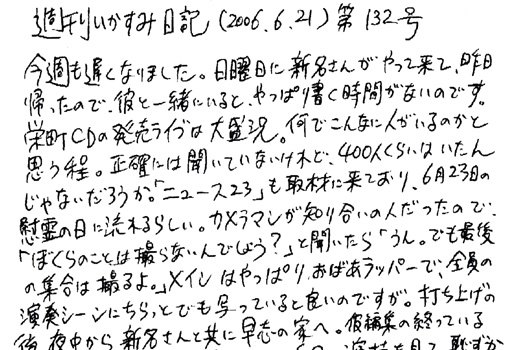 週刊いかすみ日記(2006.6.21)第132号
今週も遅くなりました。日曜日に新名さんがやって来て、昨日
帰ったので、彼と一緒にいると、やっぱり書く時間がないのです。
栄町CDの発売ライブは大盛況。何でこんなに人がいるのかと
思う程。正確には聞いていないけれど、400人くらいはいたん
じゃないだろうか。「ニュース23」も取材に来ており、6月23日の
慰霊の日に流れるらしい。カメラマンが知り合いの人だったので、
「ぼくらのことは撮らないんでしょう?」と聞いたら「うん。でも最後
の集合は撮るよ。」メインはやっぱりおばあラッパーで、全員の
演奏シーンにちらっとでも写っていると良いのですが。打ち上げの
後、夜中から新名さんと共に早志の家へ。仮編集の終っている
を見て、恥ずか